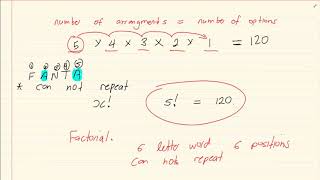 number of arrangments = number of options
5 × 4 × 3 × 2 × 1 = 120
F A N T A
* can not repeat
x!
5! = 120
Factorial.
5 letter word 5 positions
can not repeat